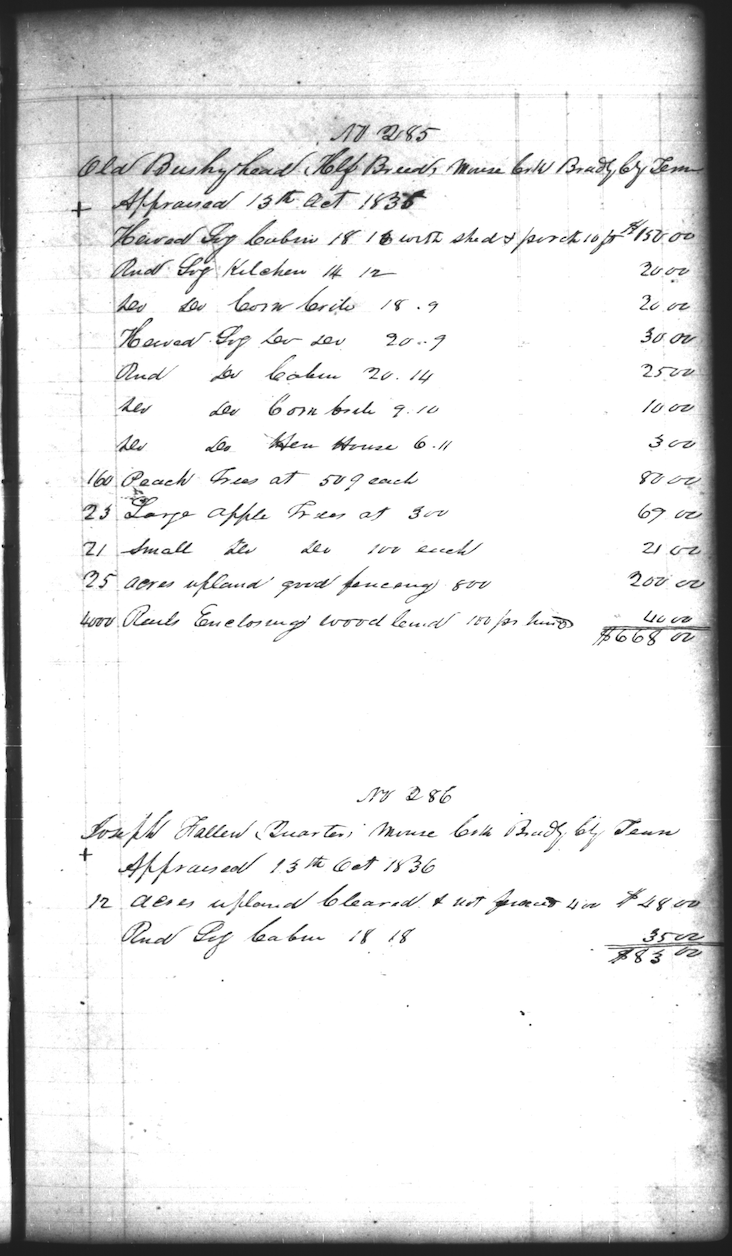 No 285
Old Bushyhead Half Breed, Mouse Crk Bradly Cty Tenn
+ Appraised 13th Oct 1836
Hewed Log Cabin 18 16 with shed & porch 10 ft $150 00
Rnd Log Kitchen 14 12 20 00
Do Do Corn Crib 18.9 20 00
Hewed Log Do Do 20..9 30 00
Rnd Do Cabin 20.14 25 00
Do Do Corn Crib 9.10 10 00
Do Do Hen House 6.11 3 00
160 Peach Trees at 50 ¢ each 80 00
23 Large apple Trees at 300 69 00
21 Small Do Do 100 each 21 00
25 acres upland good fencing 800 200 00
4000 Rails Enclosing wood land 100 pr hund 40 00
$668 00
No 286
Joseph Fallen Quarter, Mouse Crk Bradly Cty Tenn
+ Appraised 13th Oct 1836
12 acres upland Cleared & not fenced 400 $48 00
Rnd Log Cabin 18 18 35 00
$83 00